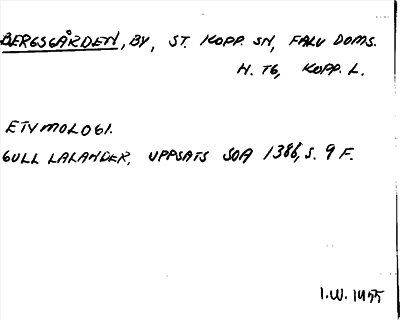 BERGSGÅRDEN, BY, ST. KOPP. SN, FALU DOMS.
H. TG, KOPP. L.
ETYMOLOGI.
GULL LALANDER, UPPSATS SOA 1386, S. 9 F.
I.W. 1955